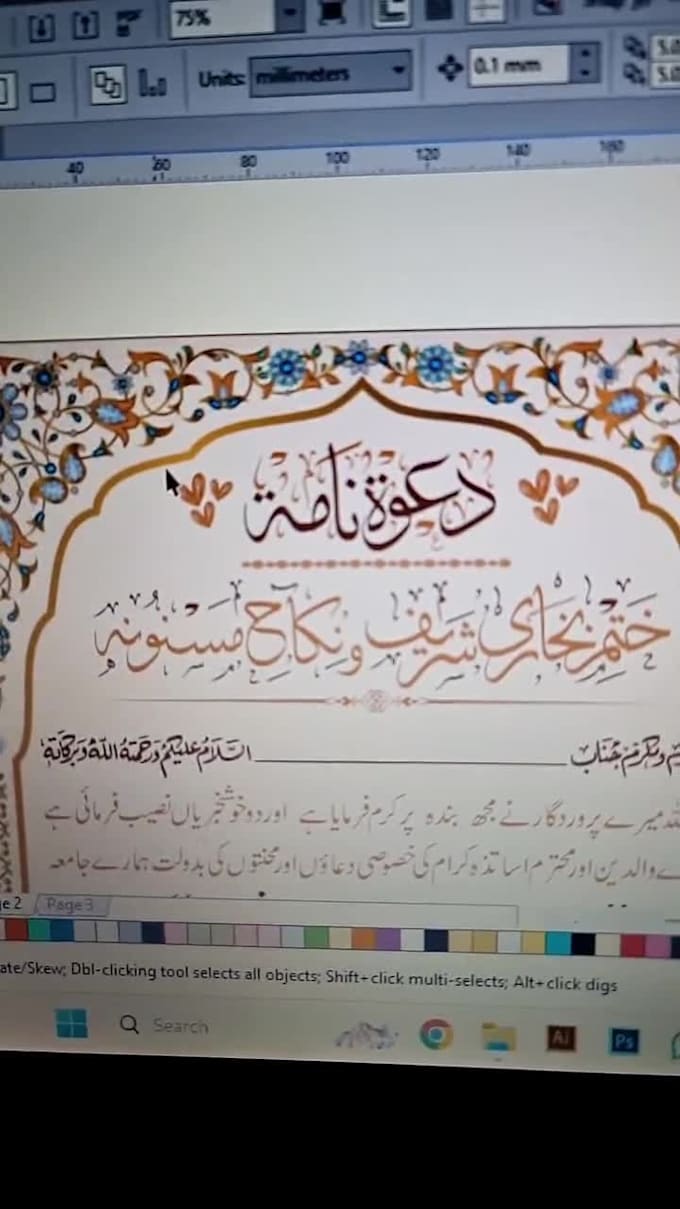 75%
Units: millimeters 0.1 mm 5.0
5.0
40 60 80 100 120 140 160
دعوة نامة
ختم بخاری شریف و نکاح مسنونہ
ومکرم جناب ــــــــــــــــــــ السلام علیکم ورحمتہ اللہ وبرکاتہ
میرے پروردگار نے مجھ بندہ پر کرم فرمایا ہے اور دو خوشخبریاں نصیب فرمائی ہے
والدین اور محترم اساتذہ کرام کی خصوصی دعاؤں اور محنتوں کی بدولت ہمارے جامعہ
ge 2 Page 3
ate/Skew; Dbl-clicking tool selects all objects; Shift+click multi-selects; Alt+click digs
Search Ai Ps